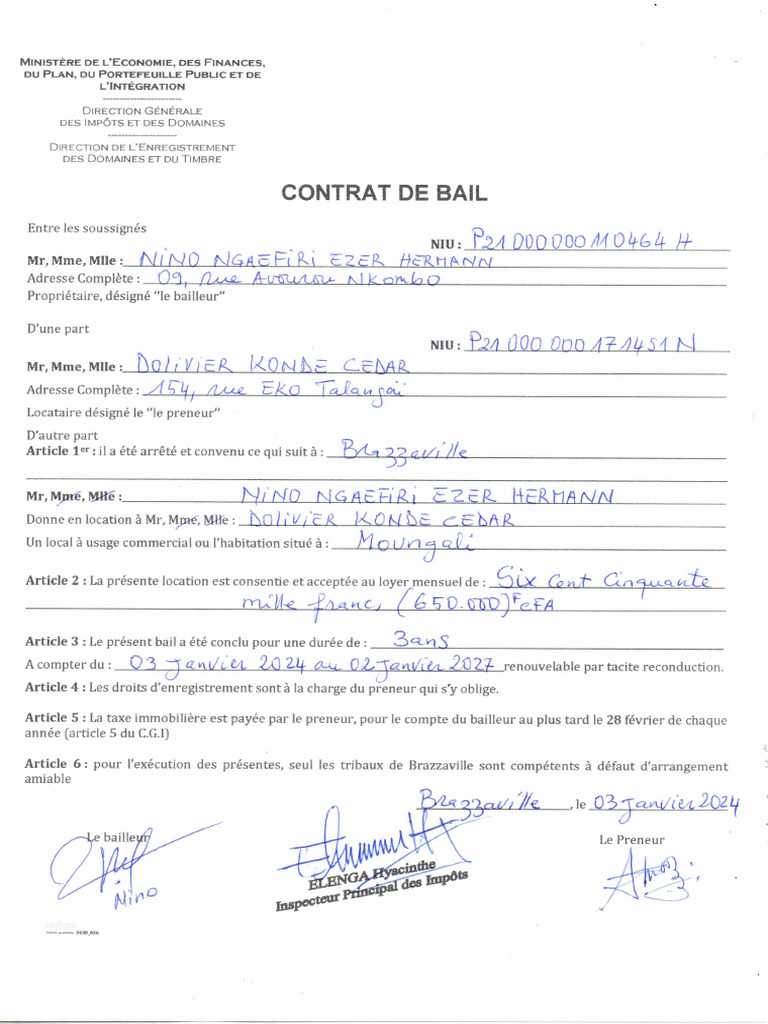 MINISTÈRE DE L'ECONOMIE, DES FINANCES,
DU PLAN, DU PORTEFEUILLE PUBLIC ET DE
L'INTÉGRATION
DIRECTION GÉNÉRALE
DES IMPÔTS ET DES DOMAINES
DIRECTION DE L'ENREGISTREMENT
DES DOMAINES ET DU TIMBRE
CONTRAT DE BAIL
Entre les soussignés
NIU : P21 000 000 110464 H
Mr, Mme, Mlle : NINO NGAEFIRI EZER HERMANN
Adresse Complète : 09, rue Avourou NKombo
Propriétaire, désigné "le bailleur"
D'une part
NIU : P21 000 000 171451 N
Mr, Mme, Mlle : DOLIVIER KONDE CEDAR
Adresse Complète : 154, rue EKO Talangaï
Locataire désigné le "le preneur"
D'autre part
Article 1er : il a été arrêté et convenu ce qui suit à : Brazzaville
Mr, Mme, Mlle : NINO NGAEFIRI EZER HERMANN
Donne en location à Mr, Mme, Mlle : DOLIVIER KONDE CEDAR
Un local à usage commercial ou l'habitation situé à : Moungali
Article 2 : La présente location est consentie et acceptée au loyer mensuel de : Six Cent Cinquante
mille francs (650.000) FcFA
Article 3 : Le présent bail a été conclu pour une durée de : 3ans
A compter du : 03 janvier 2024 au 02 janvier 2027 renouvelable par tacite reconduction.
Article 4 : Les droits d'enregistrement sont à la charge du preneur qui s'y oblige.
Article 5 : La taxe immobilière est payée par le preneur, pour le compte du bailleur au plus tard le 28 février de chaque
année (article 5 du C.G.I)
Article 6 : pour l'exécution des présentes, seul les tribaux de Brazzaville sont compétents à défaut d'arrangement
amiable
Brazzaville, le 03 janvier 2024
Le bailleur
Le Preneur
ELENGA Hyacinthe
Inspecteur Principal des Impôts
Nino
DGID_026